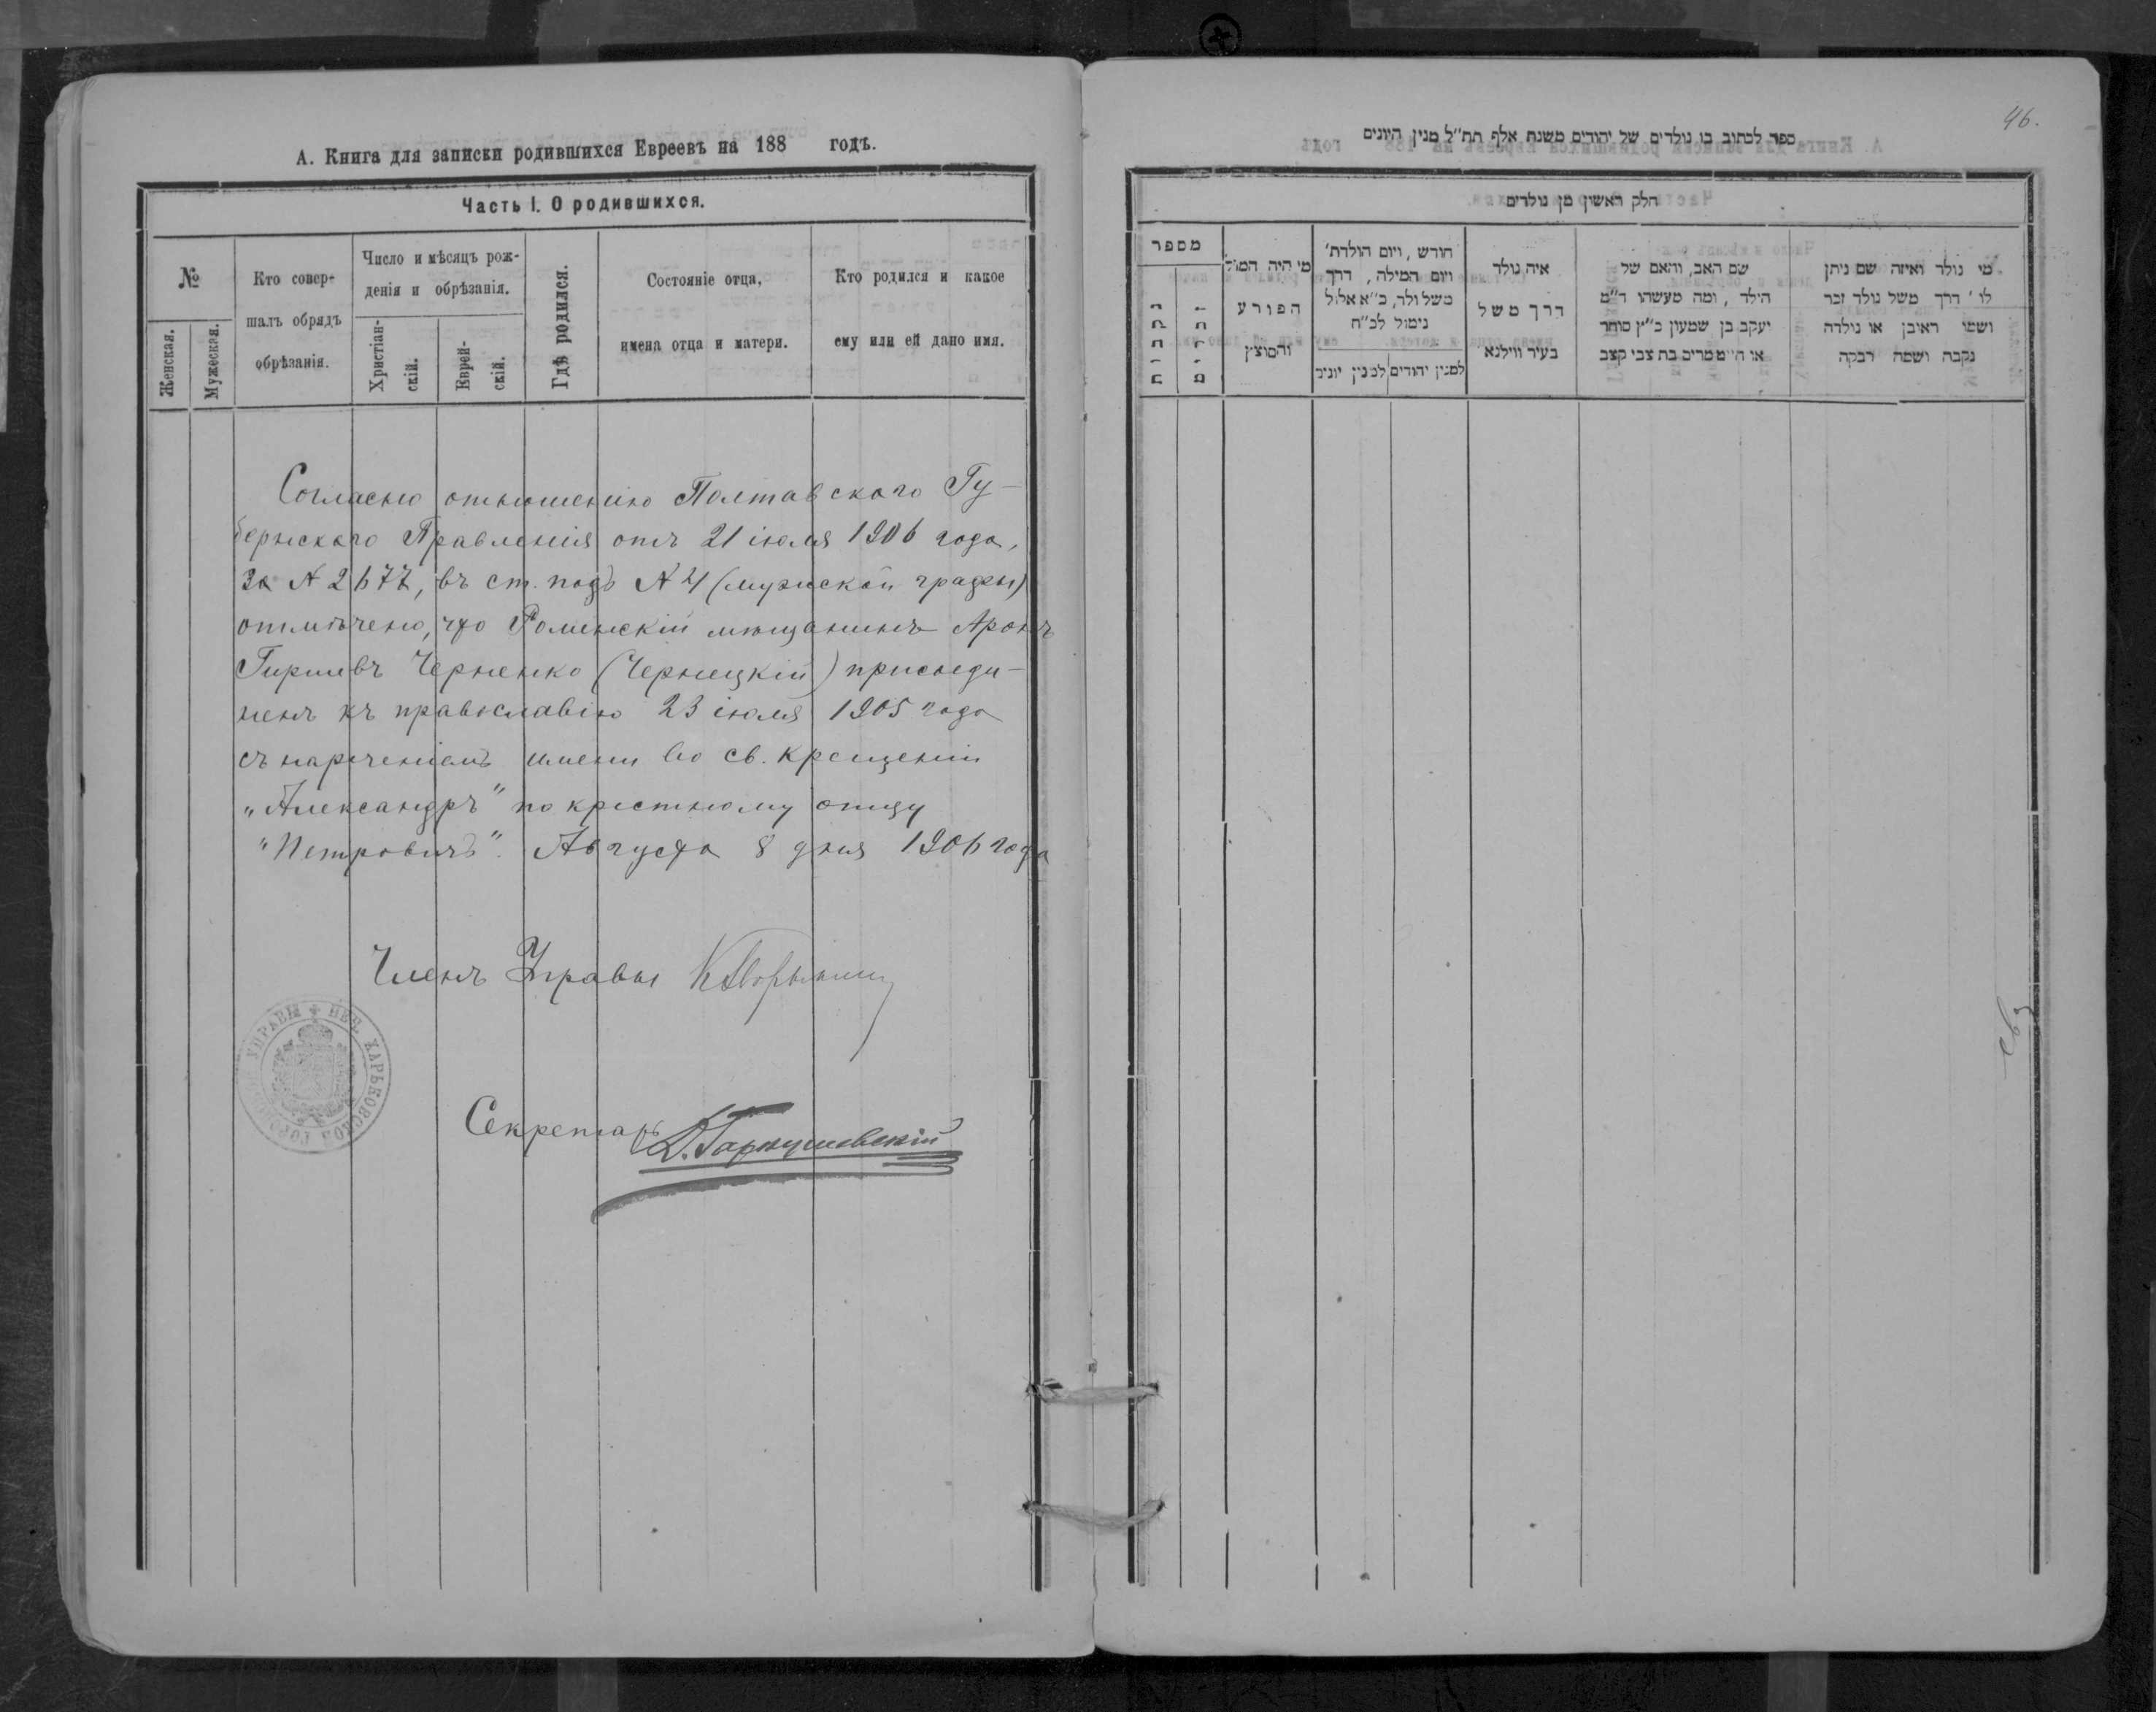 А. Книга для записки родившихся Евреевъ на 188 годъ.
Часть I. О родившихся.
№
Женская.
Мужеская.
Кто совер-
шалъ обрядъ
обрѣзанія.
Число и мѣсяцъ рож-
денія и обрѣзанія.
Христіан-
скій.
Еврей-
скій.
Гдѣ родился.
Состояніе отца,
имена отца и матери.
Кто родился и какое
ему или ей дано имя.
Согласно отношенію Полтавскаго Гу-
бернскаго Правленія отъ 21 іюля 1906 года,
за № 2677, въ ст. подъ № 4 (мужской графы)
отмѣчено, что Роменскій мѣщанинъ Аронъ
Гиршевъ Черненко (Чернецкій) присоеди-
ненъ къ православію 23 іюля 1905 года
съ нареченіемъ имени во св. Крещеніи
„Александръ" по крестному отцу
"Петровичъ". Августа 8 дня 1906 года
Членъ Управы
Секретарь
УПРАВЫ ПЕЧ. ХАРЬКОВСКОЙ ГОРОД
46.
ספר לכתוב בו נולדים של יהודים משנת אלף תת״ל מנין היונים
חלק ראשון מן נולדים
מספר
נקבות
זכרים
מי היה המול
הפורע
והמוצץ
חורש, ויום הולדת'
ויום המילה, דרך
משל ולד, כ״א אלול
נימול לכ״ח
למנין יהודים
למנין יונים
איה נולד
דרך משל
בעיר ווילנא
שם האב, והאם של
הילד, ומה מעשהו ד״מ
יעקב בן שמעון כ״ץ סוחר
בת צבי קצב
מי נולד ואיזה שם ניתן
לו ' דרך משל נולד זכר
ושמו ראובן או נולדה
נקבה ושמה רבקה